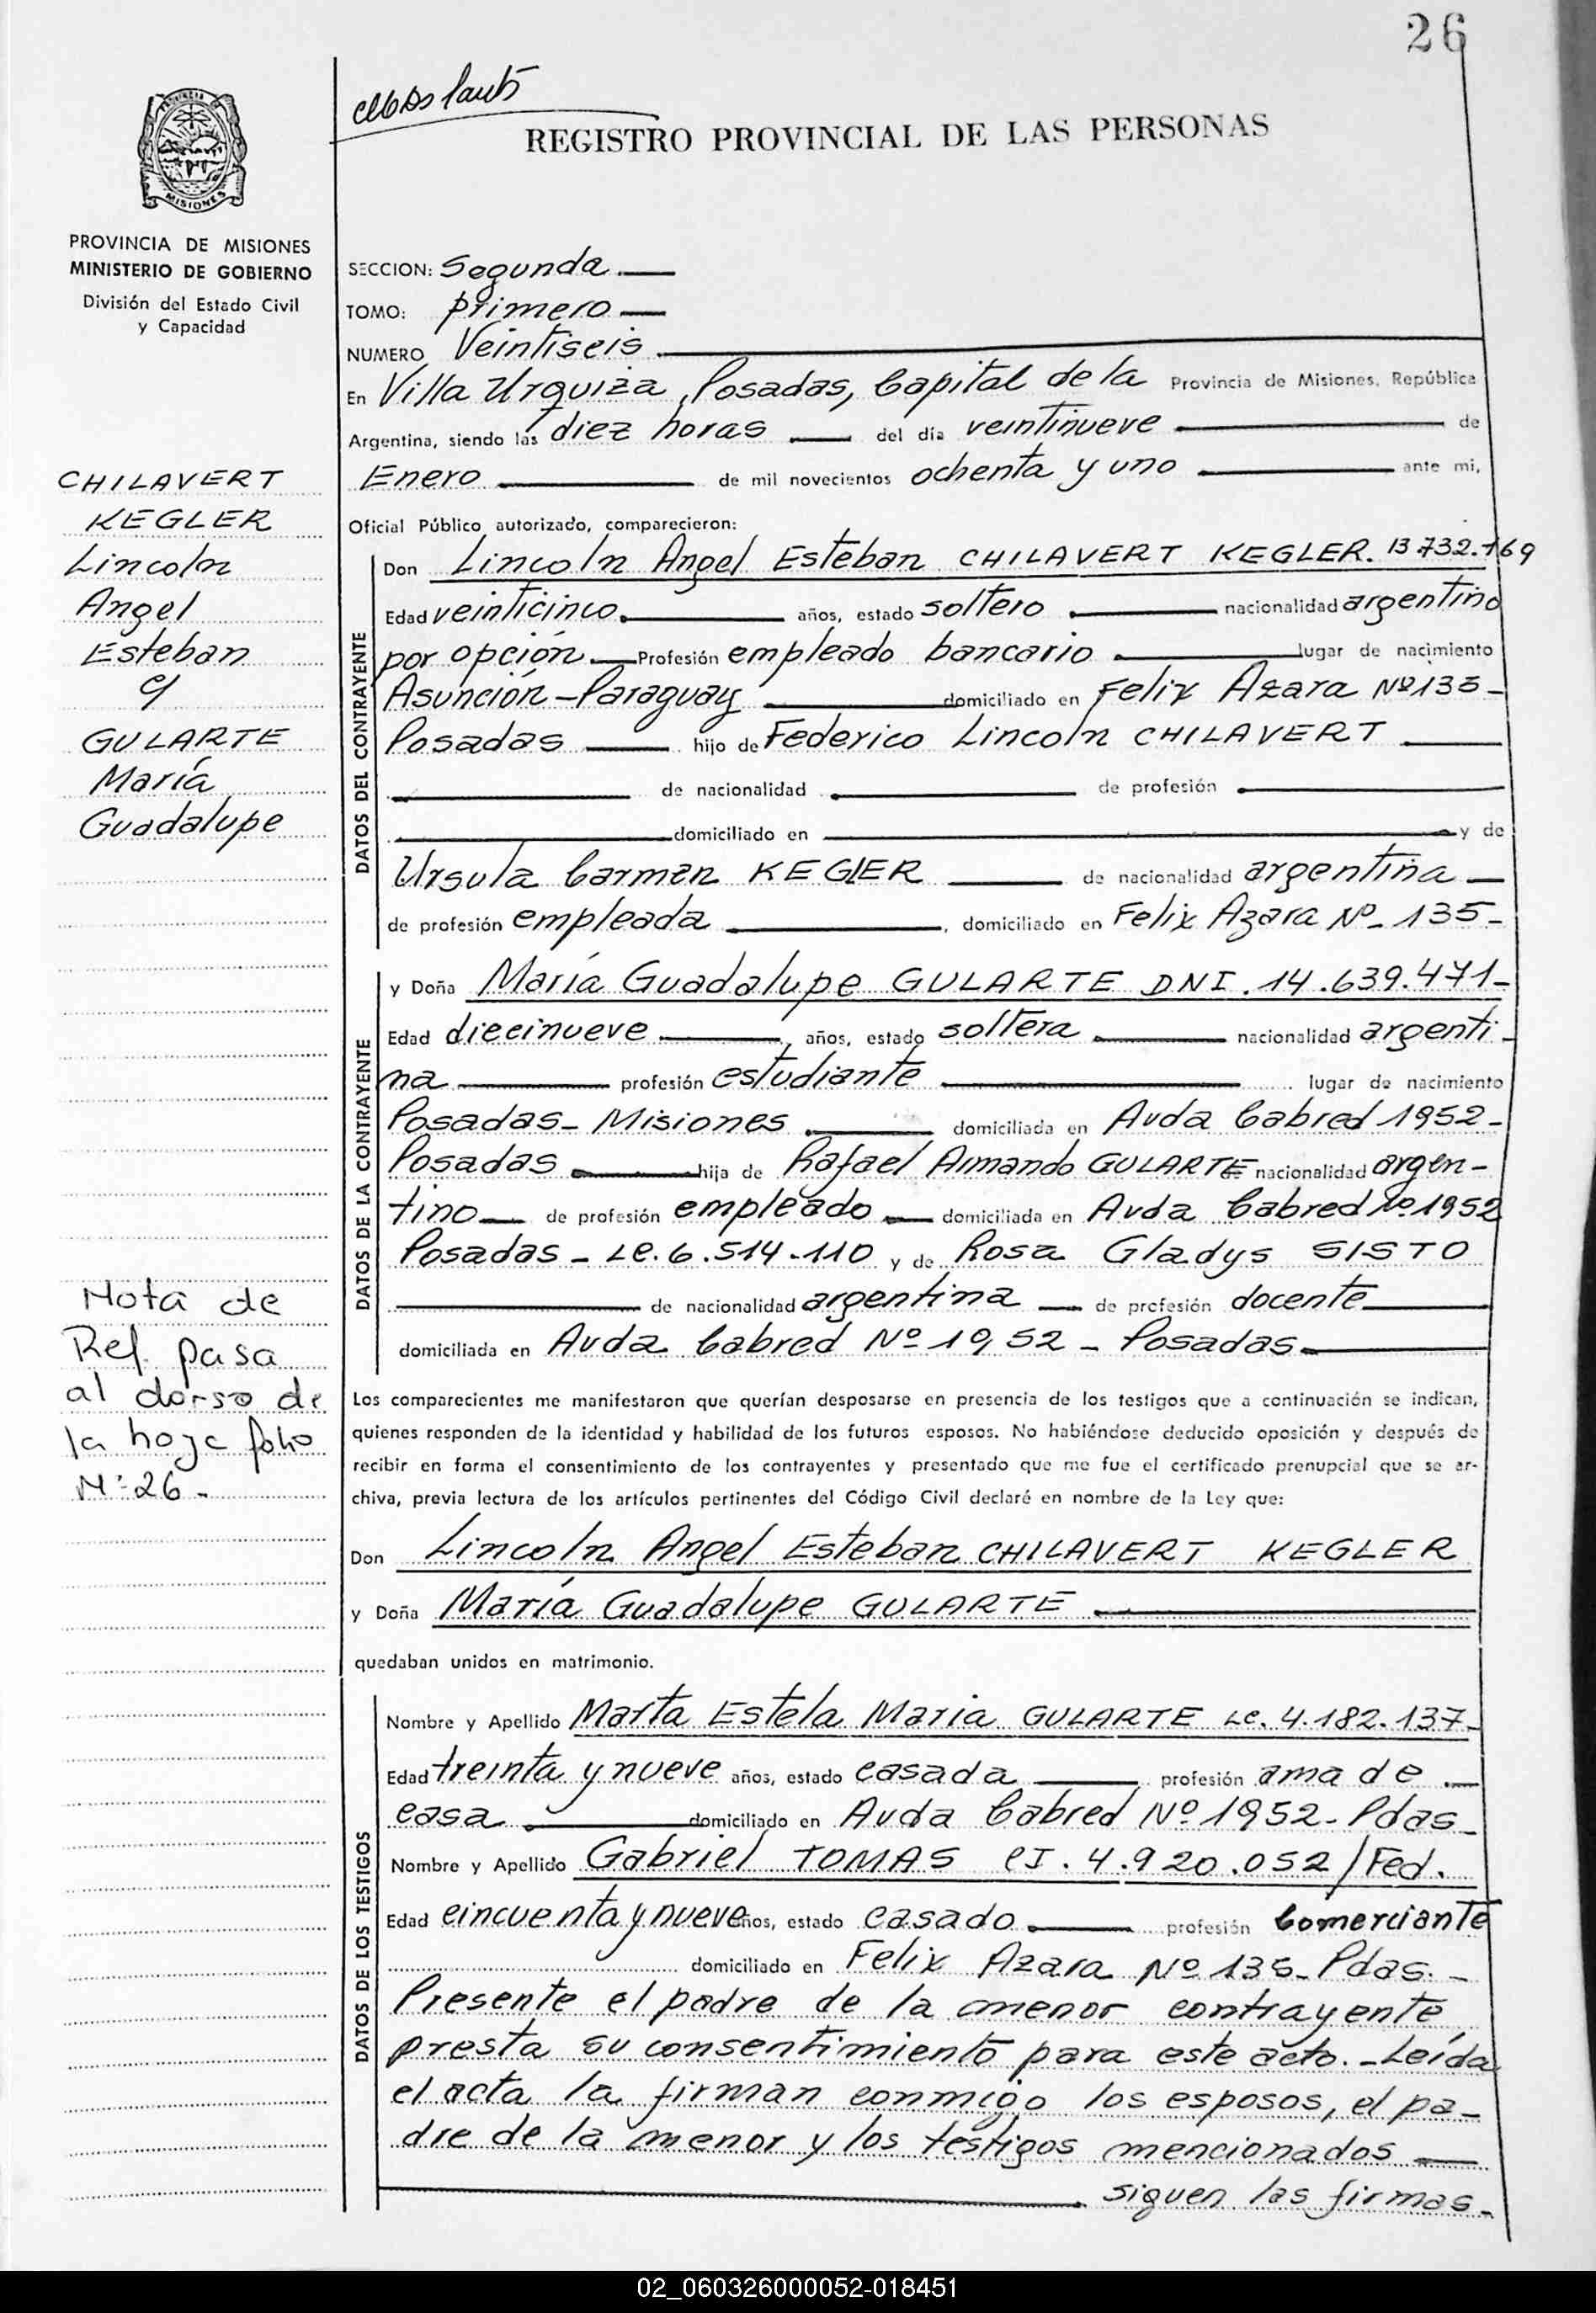 26
REGISTRO PROVINCIAL DE LAS PERSONAS
PROVINCIA DE MISIONES
MINISTERIO DE GOBIERNO
División del Estado Civil
y Capacidad
CHILAVERT
KEGLER
Lincoln
Angel
Esteban
c/
GULARTE
María
Guadalupe
Nota de
Ref. pasa
al dorso de
la hoja folio
Nº 26 -
SECCION: Segunda
TOMO: primero
NUMERO Veintiseis
En Villa Urquiza, Posadas, Capital de la Provincia de Misiones, República
Argentina, siendo las diez horas del día veintinueve de
Enero de mil novecientos ochenta y uno ante mi,
Oficial Público autorizado, comparecieron:
DATOS DEL CONTRAYENTE
Don Lincoln Angel Esteban CHILAVERT KEGLER. 13.732.769
Edad veinticinco años, estado soltero nacionalidad argentino
por opción Profesión empleado bancario lugar de nacimiento
Asunción - Paraguay domiciliado en Felix Azara Nº 135 -
Posadas hijo de Federico Lincoln CHILAVERT
de nacionalidad de profesión
domiciliado en y de
Ursula Carmen KEGLER de nacionalidad argentina
de profesión empleada, domiciliado en Felix Azara Nº - 135 -
DATOS DE LA CONTRAYENTE
y Doña María Guadalupe GULARTE DNI. 14.639.471 -
Edad diecinueve, años, estado soltera nacionalidad argenti -
na profesión estudiante lugar de nacimiento
Posadas - Misiones domiciliada en Avda Cabred 1952 -
Posadas hija de Rafael Armando GULARTE nacionalidad argen -
tino de profesión empleado domiciliada en Avda Cabred Nº 1952
Posadas - LE. 6.514.110 y de Rosa Gladys SISTO
de nacionalidad argentina de profesión docente
domiciliada en Avda Cabred Nº 1952 - Posadas
Los comparecientes me manifestaron que querían desposarse en presencia de los testigos que a continuación se indican,
quienes responden de la identidad y habilidad de los futuros esposos. No habiéndose deducido oposición y después de
recibir en forma el consentimiento de los contrayentes y presentado que me fue el certificado prenupcial que se ar-
chiva, previa lectura de los artículos pertinentes del Código Civil declaré en nombre de la Ley que:
Don Lincoln Angel Esteban CHILAVERT KEGLER
y Doña María Guadalupe GULARTE
quedaban unidos en matrimonio.
DATOS DE LOS TESTIGOS
Nombre y Apellido Marta Estela Maria GULARTE LC. 4.182.137 -
Edad treinta y nueve años, estado casada profesión ama de
casa domiciliado en Avda Cabred Nº 1952 - Pdas -
Nombre y Apellido Gabriel TOMAS CI. 4.920.052/Fed.
Edad cincuenta y nueve años, estado casado profesión Comerciante
domiciliado en Felix Azara Nº 135 - Pdas. -
Presente el padre de la menor contrayente,
presta su consentimiento para este acto. - Leída
el acta la firman conmigo los esposos, el pa -
dre de la menor y los testigos mencionados
siguen las firmas -
02_060326000052-018451